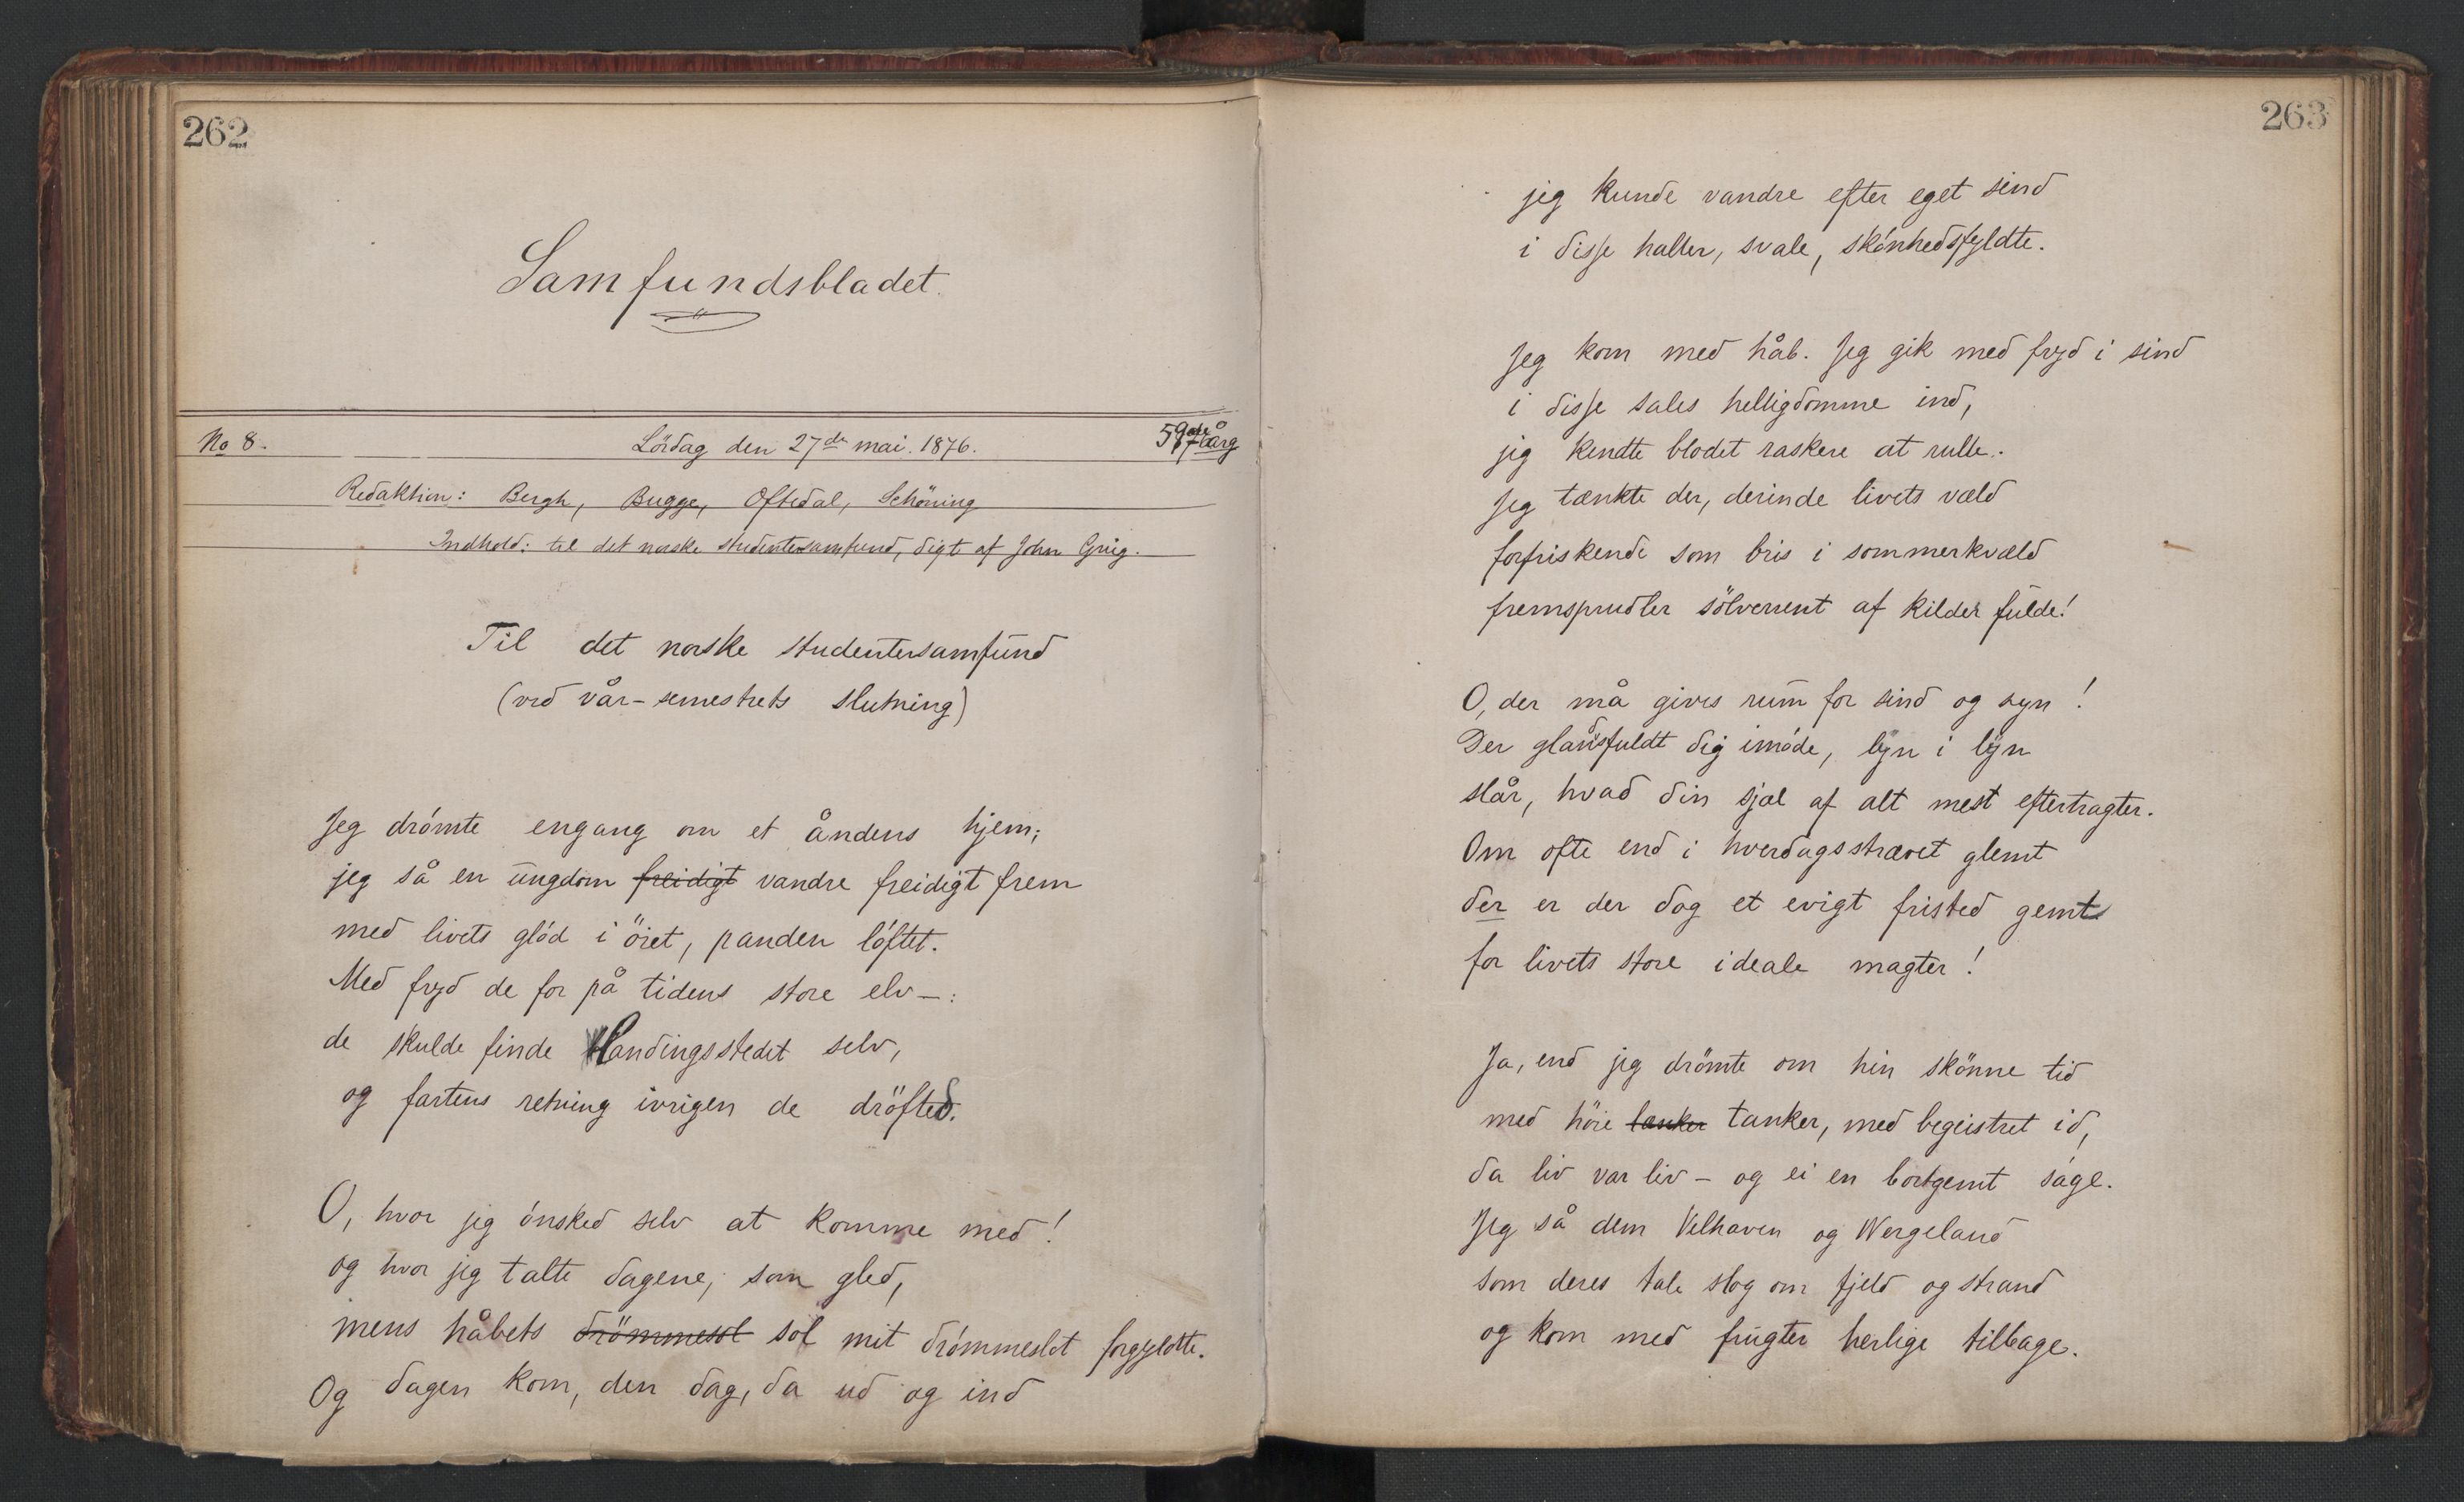 262
Samfundsbladet.
No 8. Lördag den 27de mai. 1876. 59de årg
Redaktion: Bergh, Bugge, Oftedal, Schöning
Indhold: til det norske studentersamfund, digt af John Grieg.
Til det norske studentersamfund
(ved vår-semestrets slutning)
Jeg drömte engang om et åndens hjem;
jeg så en ungdom freidigt vandre freidigt frem
med livets glöd i öiet, panden löftet.
Med fryd de for på tidens store elv—:
de skulde finde landingsstedet selv,
og fartens retning ivrigen de dröfted.
O, hvor jeg önsked selv at komme med!
og hvor jeg talte dagene, som gled,
mens håbets drömmesol sol mit drömmeslot forgyldte.
Og dagen kom, den dag, da ud og ind
263
jeg kunde vandre efter eget sind
i disse haller, svale, skönhedsfyldte.
Jeg kom med håb. Jeg gik med fryd i sind
i disse sales helligdomme ind,
jeg kendte blodet raskere at rulle.
Jeg tænkte der, derinde livets væld
forfriskende som bris i sommerkvæld
fremsprudler sölverrent af kilder fulde!
O, der må gives rum for sind og syn!
Der glansfuldt dig imöde, lyn i lyn
slår, hvad din sjæl af alt mest eftertragter.
Om ofte end i hverdagsstrævet glemt
der er der dog et evigt fristed gemt
for livets store ideale magter!
Ja, end jeg drömte om hin skönne tid
med höie tanker tanker, med begeistret id,
da liv var liv – og ei en bortgemt sage.
Jeg så dem Velhaven og Wergeland
som deres tale slog om fjeld og strand
og kom med frugter herlige tilbage.